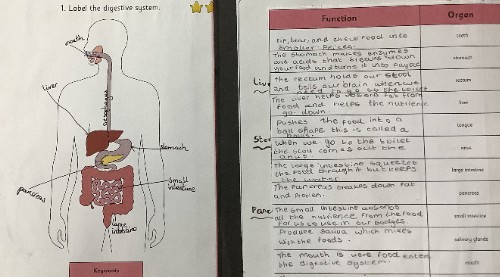 1. Label the digestive system.
mouth
liver
oesophagus
stomach
small
intestine
pancreas
large
intestine
Keywords
Function
Organ
rip, tear, and chew food into
smaller peices.
teeth
The stomach makes enzymes
and acids that breaks down
your food and turns it into
stomach
The rectum holds our stool
and tells our brain when we
need to go to the toilet
rectum
The liver helps
food and helps the nutrience
go down.
liver
Pushes the food into a
ball shape this is called a
tongue
When we go to the toilet
the stool comes out the
anus
anus
The large intestine squeezes
the food through it but keeps
the water
large intestine
The pancreas breaks down fat
and protien.
pancreas
The small intestine absorbs
all the nutrience from the food
for us to use in our bodies
small intestine
Produce saliva which mixes
with the foods.
salivary glands
The mouth is were food enters
the digestive system.
mouth
Live
Sto
Panc